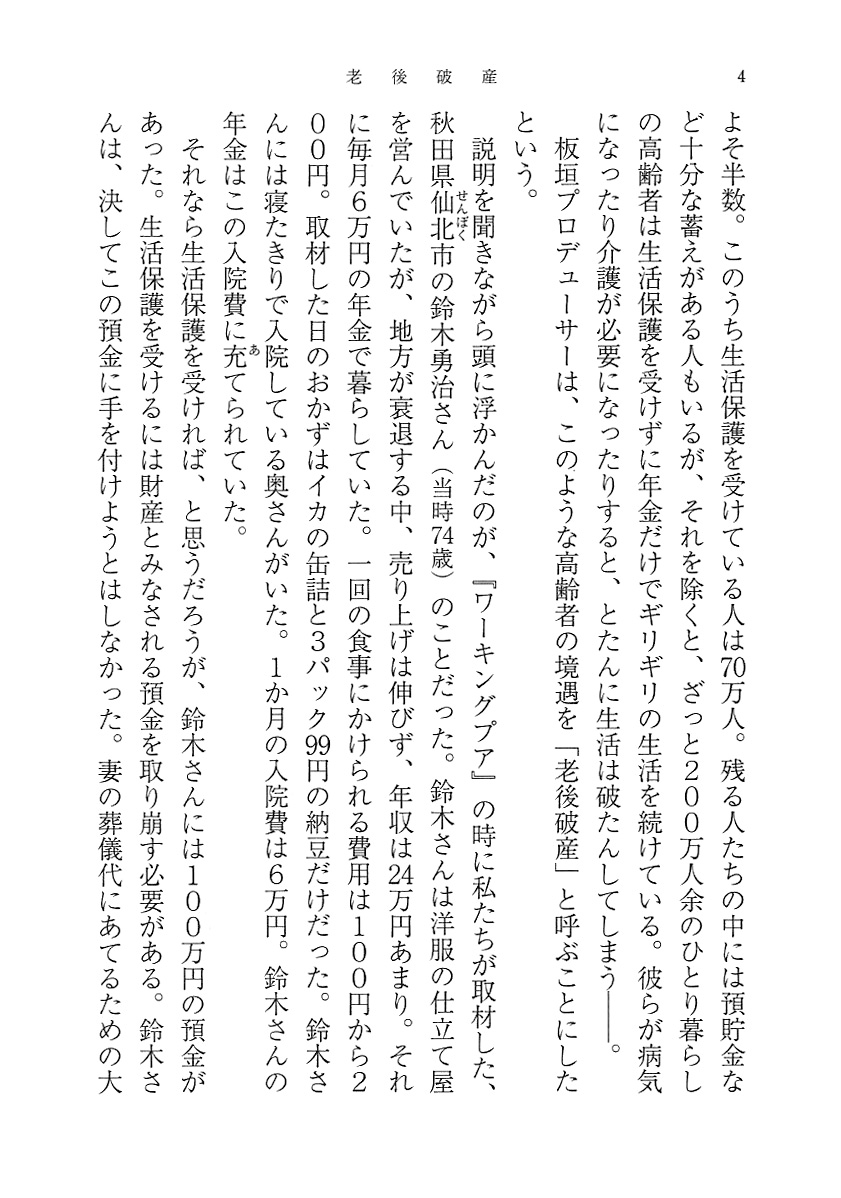 老後破産
4
よそ半数。このうち生活保護を受けている人は70万人。残る人たちの中には預貯金な
ど十分な蓄えがある人もいるが、それを除くと、ざっと２００万人余のひとり暮らし
の高齢者は生活保護を受けずに年金だけでギリギリの生活を続けている。彼らが病気
になったり介護が必要になったりすると、とたんに生活は破たんしてしまう――。
　板垣プロデューサーは、このような高齢者の境遇を「老後破産」と呼ぶことにした
という。
　説明を聞きながら頭に浮かんだのが、『ワーキングプア』の時に私たちが取材した、
秋田県仙北市の鈴木勇治さん（当時74歳）のことだった。鈴木さんは洋服の仕立て屋
せんぼく
を営んでいたが、地方が衰退する中、売り上げは伸びず、年収は24万円あまり。それ
に毎月６万円の年金で暮らしていた。一回の食事にかけられる費用は１００円から２
００円。取材した日のおかずはイカの缶詰と３パック99円の納豆だけだった。鈴木さ
んには寝たきりで入院している奥さんがいた。１か月の入院費は６万円。鈴木さんの
年金はこの入院費に充てられていた。
あ
　それなら生活保護を受ければ、と思うだろうが、鈴木さんには１００万円の預金が
あった。生活保護を受けるには財産とみなされる預金を取り崩す必要がある。鈴木さ
んは、決してこの預金に手を付けようとはしなかった。妻の葬儀代にあてるための大